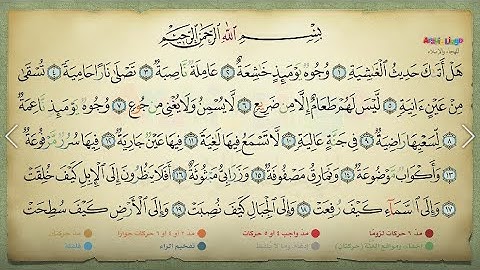 Arabic Lingo
بِسْمِ اللَّهِ الرَّحْمَٰنِ الرَّحِيمِ
هَلْ أَتَىٰكَ حَدِيثُ الْغَٰشِيَةِ ١ وُجُوهٌ يَوْمَئِذٍ خَٰشِعَةٌ ٢ عَامِلَةٌ نَّاصِبَةٌ ٣ تَصْلَىٰ نَارًا حَامِيَةً ٤ تُسْقَىٰ
مِنْ عَيْنٍ ءَانِيَةٍ ٥ لَّيْسَ لَهُمْ طَعَامٌ إِلَّا مِن ضَرِيعٍ ٦ لَّا يُسْمِنُ وَلَا يُغْنِي مِن جُوعٍ ٧ وُجُوهٌ يَوْمَئِذٍ نَّاعِمَةٌ
٨ لِّسَعْيِهَا رَاضِيَةٌ ٩ فِي جَنَّةٍ عَالِيَةٍ ١٠ لَّا تَسْمَعُ فِيهَا لَٰغِيَةً ١١ فِيهَا عَيْنٌ جَارِيَةٌ ١٢ فِيهَا سُرُرٌ مَّرْفُوعَةٌ
١٣ وَأَكْوَابٌ مَّوْضُوعَةٌ ١٤ وَنَمَارِقُ مَصْفُوفَةٌ ١٥ وَزَرَابِيُّ مَبْثُوثَةٌ ١٦ أَفَلَا يَنظُرُونَ إِلَى الْإِبِلِ كَيْفَ خُلِقَتْ
١٧ وَإِلَى السَّمَآءِ كَيْفَ رُفِعَتْ ١٨ وَإِلَى الْجِبَالِ كَيْفَ نُصِبَتْ ١٩ وَإِلَى الْأَرْضِ كَيْفَ سُطِحَتْ
مد ٦ حركات لزوما مد واجب ٤ او ٥ حركات مد ٢ او ٤ او ٦ حركات جوازا مد حركتان
إخفاء، ومواقع الغنة (حركتان) إدغام، وما لا يلفظ تفخيم الراء قلقلة